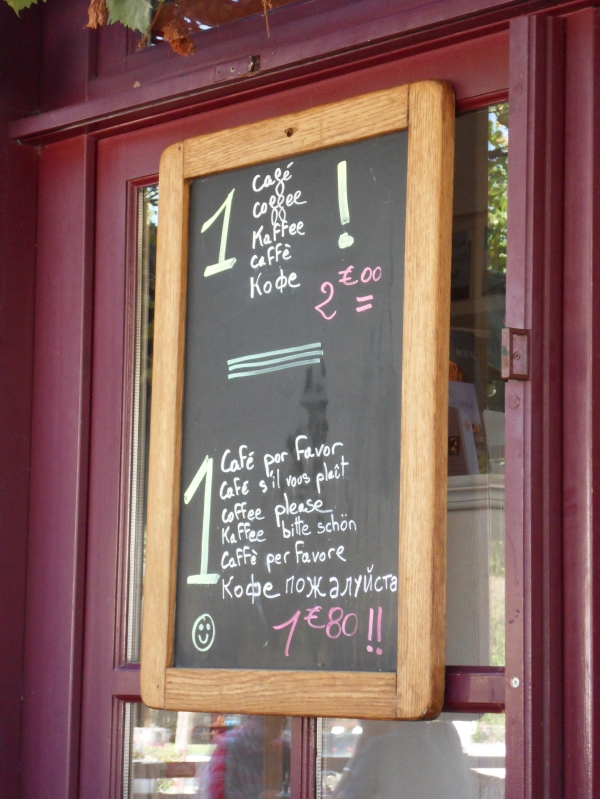 1 café !
coffee
Kaffee
caffè
Кофе
2€00
1 Café por Favor
Café s'il vous plaît
coffee please
Kaffee bitte schön
Caffè per Favore
Кофе пожалуйста
1€80 !!